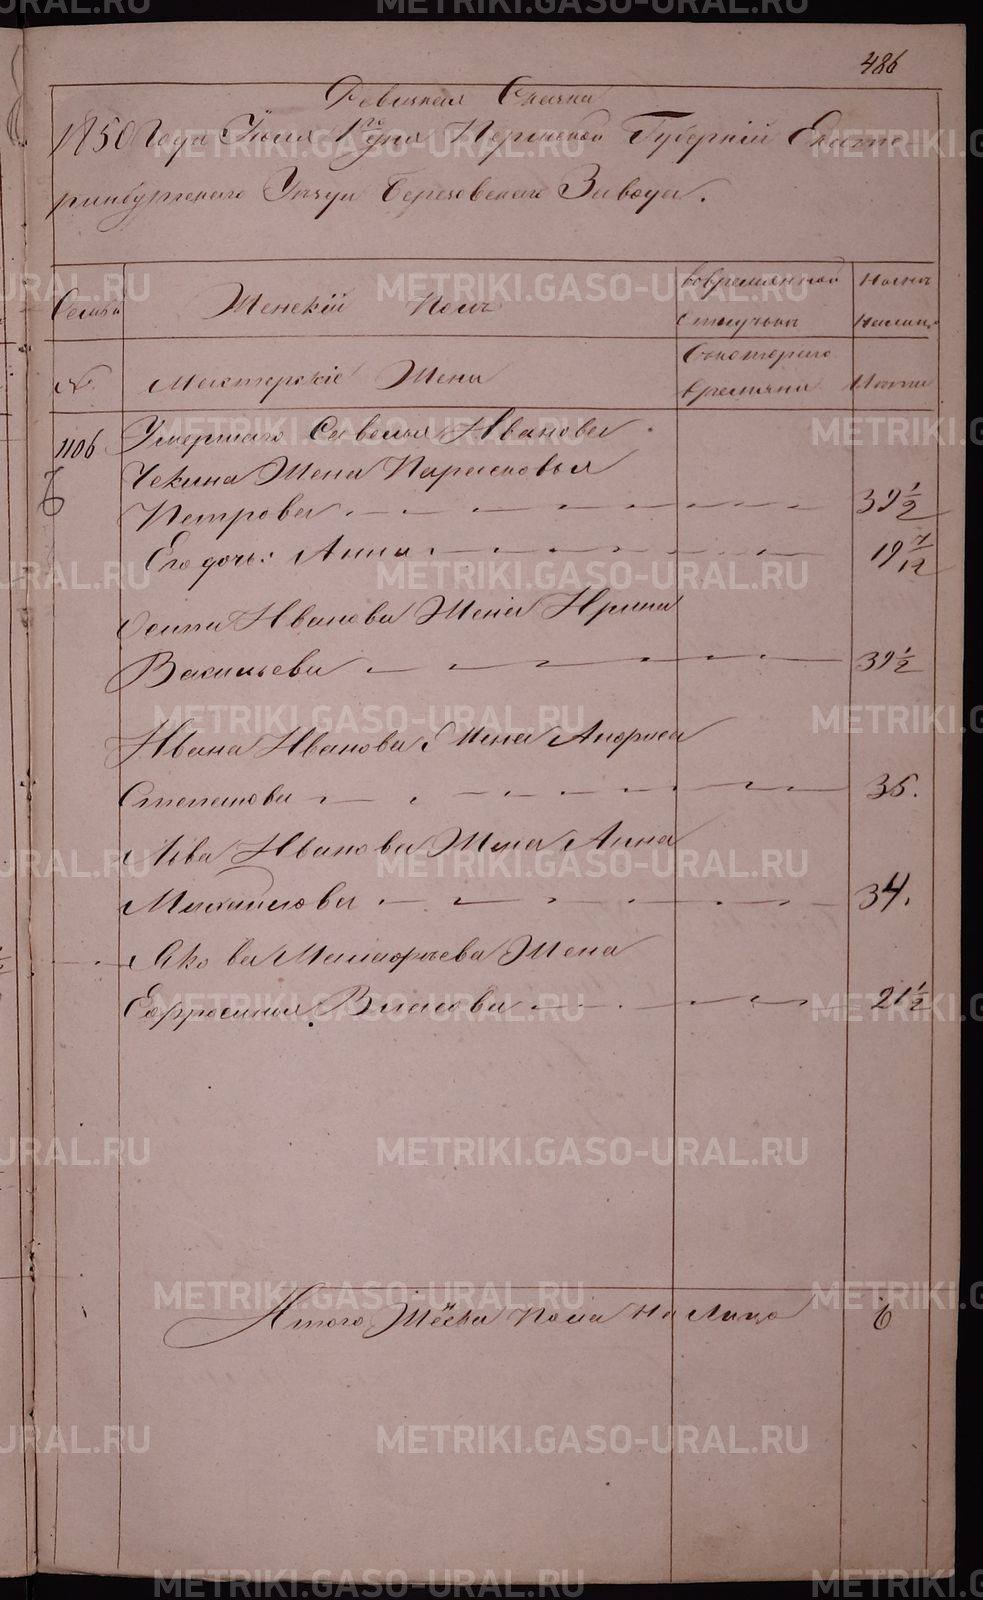 486
Ревизская Сказка
1850 Года Июля 1го дня Пермской Губерніи Екате
ринбургскаго Уезда Березовскаго Завода.
Семьи
Женскій Полъ
Вовременной
Отлучьки
Ныне
Налицо
№
Мастерскіе Жены
Съкотораго
Времяни
Лета
1106
Умершаго Савелья Иванова
Чекина Жена Парасковья
6
Петрова
39 1/2
Его дочь: Анна
19 7/12
Осипа Иванова Жена Ирина
Васильева
39 1/2
Ивана Иванова Жена Апфиса
Степанова
35.
Льва Иванова Жена Анна
Михайлова
34.
Якова Малафеева Жена
Ефросинья Власова
21 1/2
Итого Женска Пола На Лицо
6
METRIKI.GASO-URAL.RU